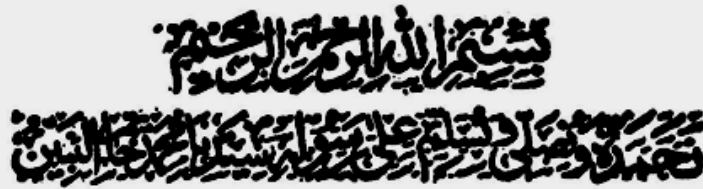 بسم الله الرحمن الرحيم
نحمده ونصلى ونسلم على رسوله سيدنا محمد خاتم النبيين